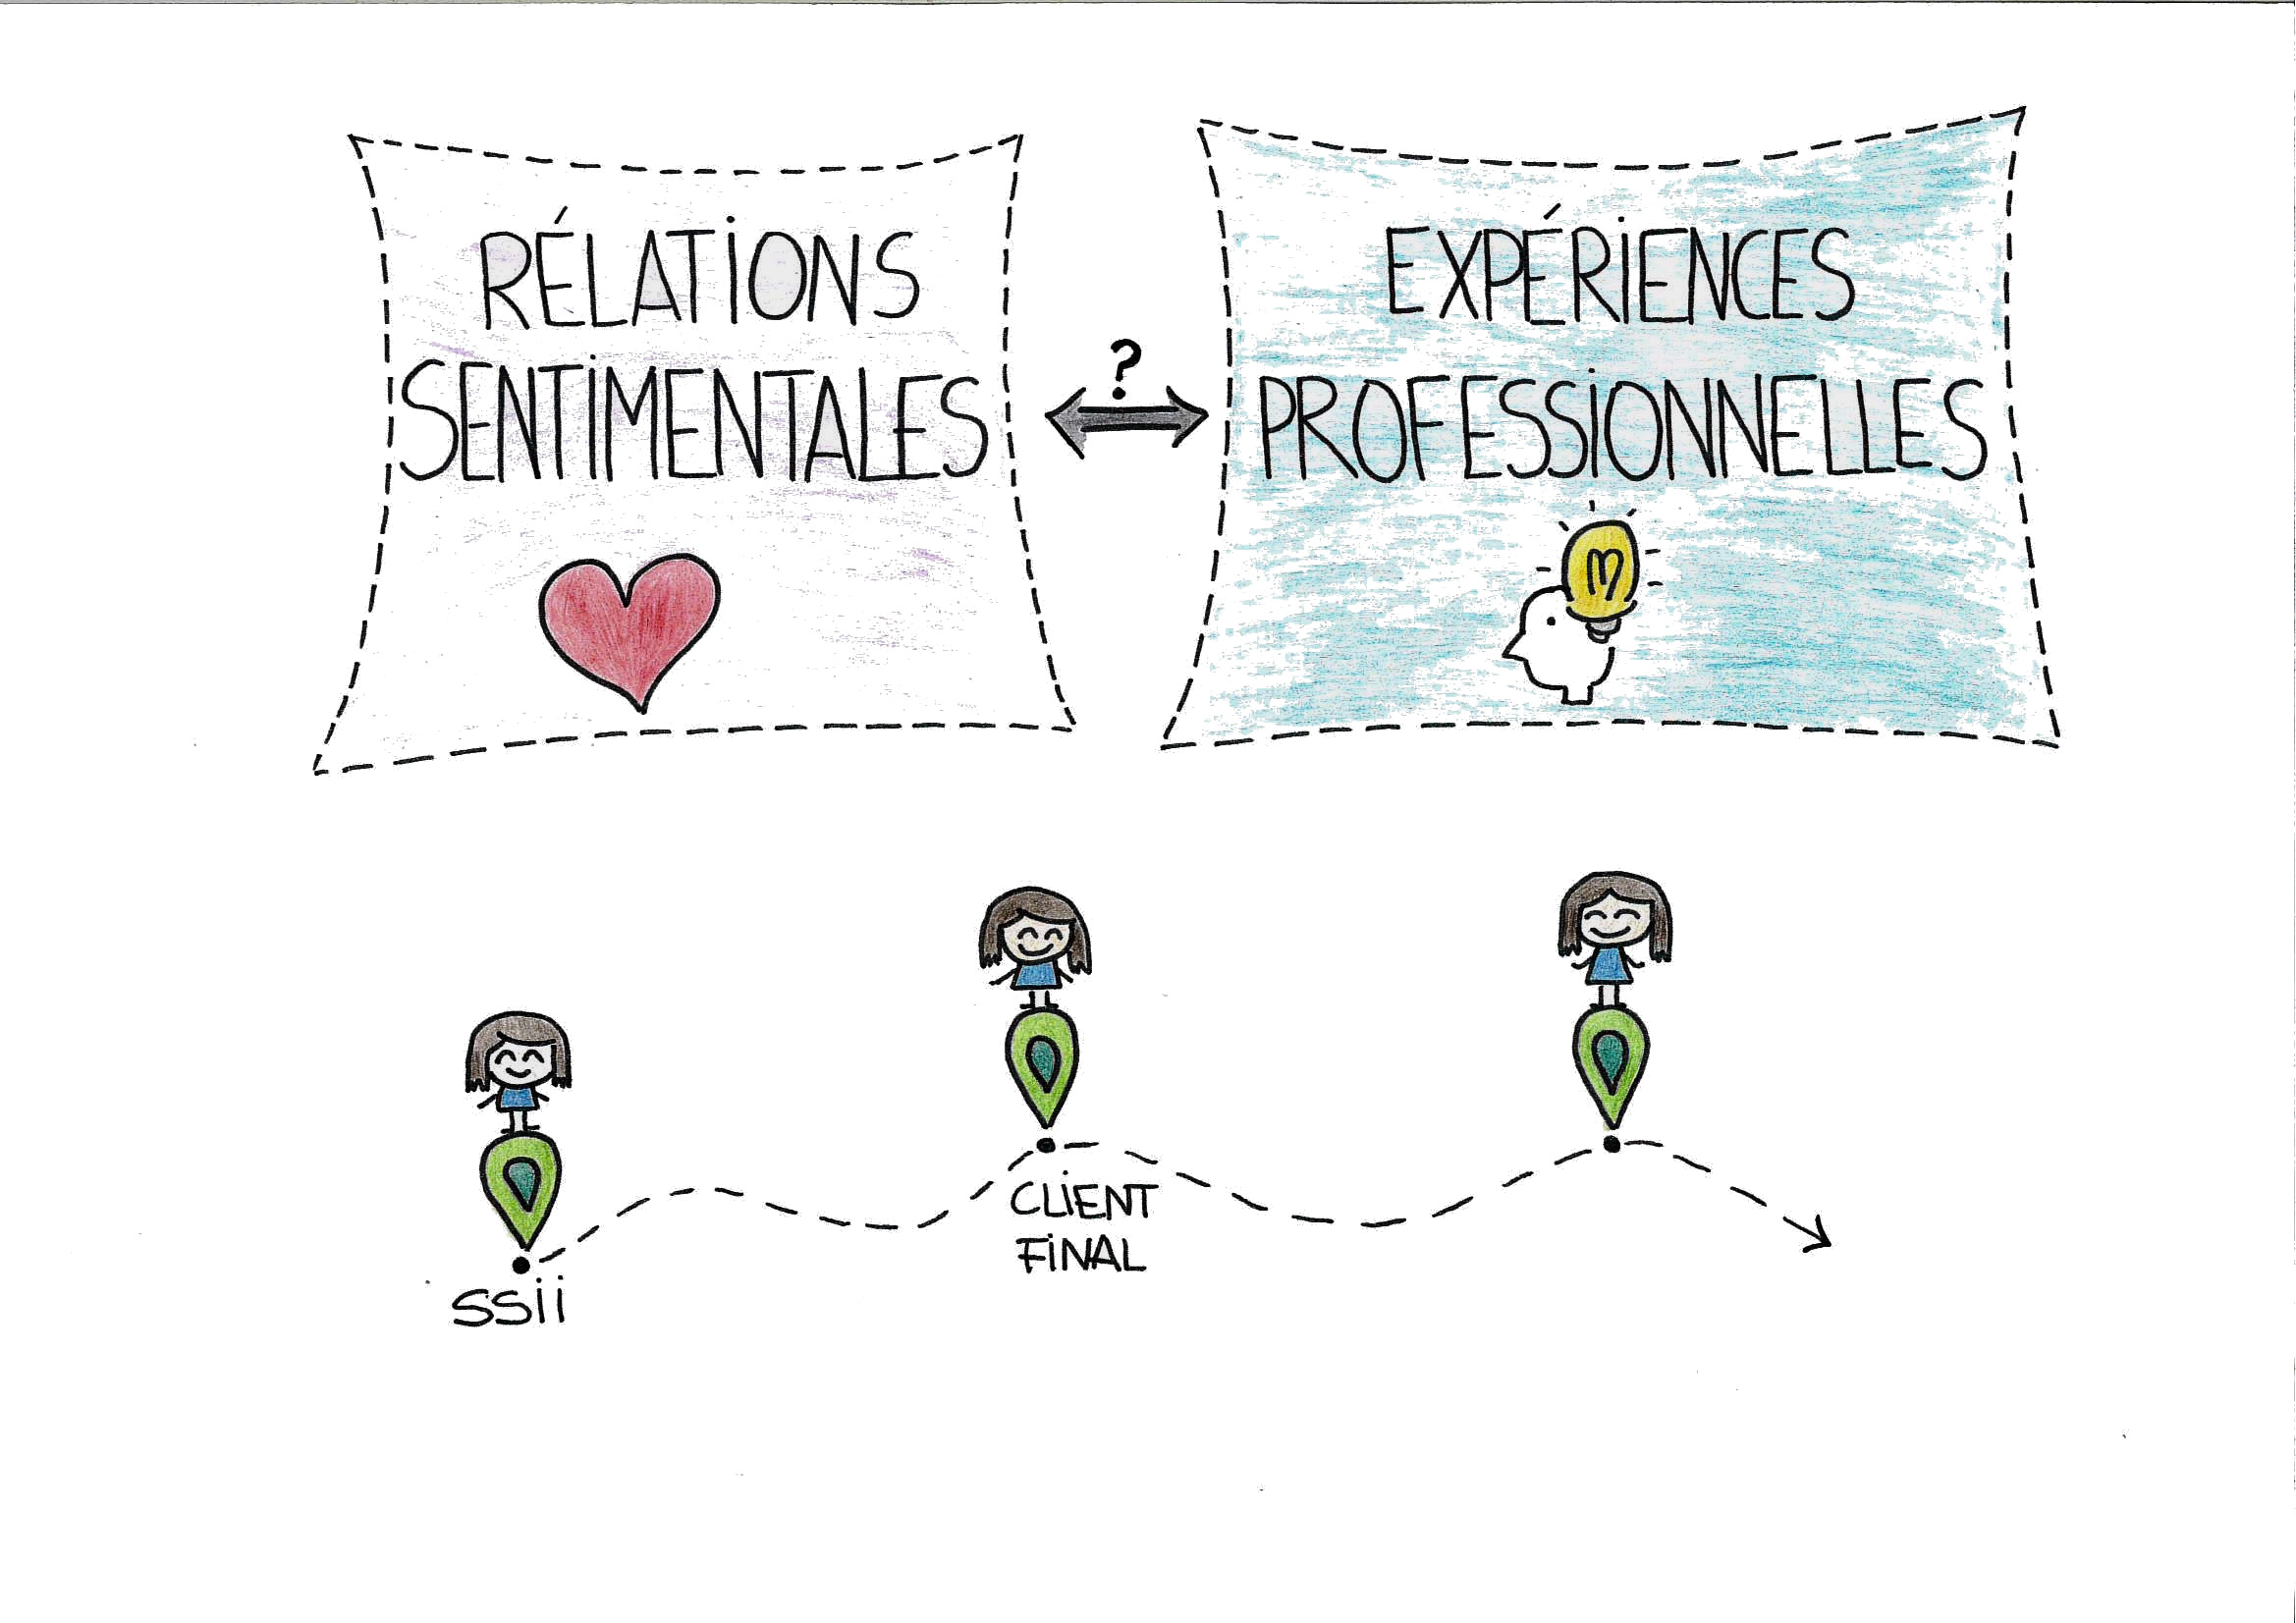 RÉLATIONS
SENTIMENTALES
?
EXPÉRIENCES
PROFESSIONNELLES
CLIENT
FINAL
SSII